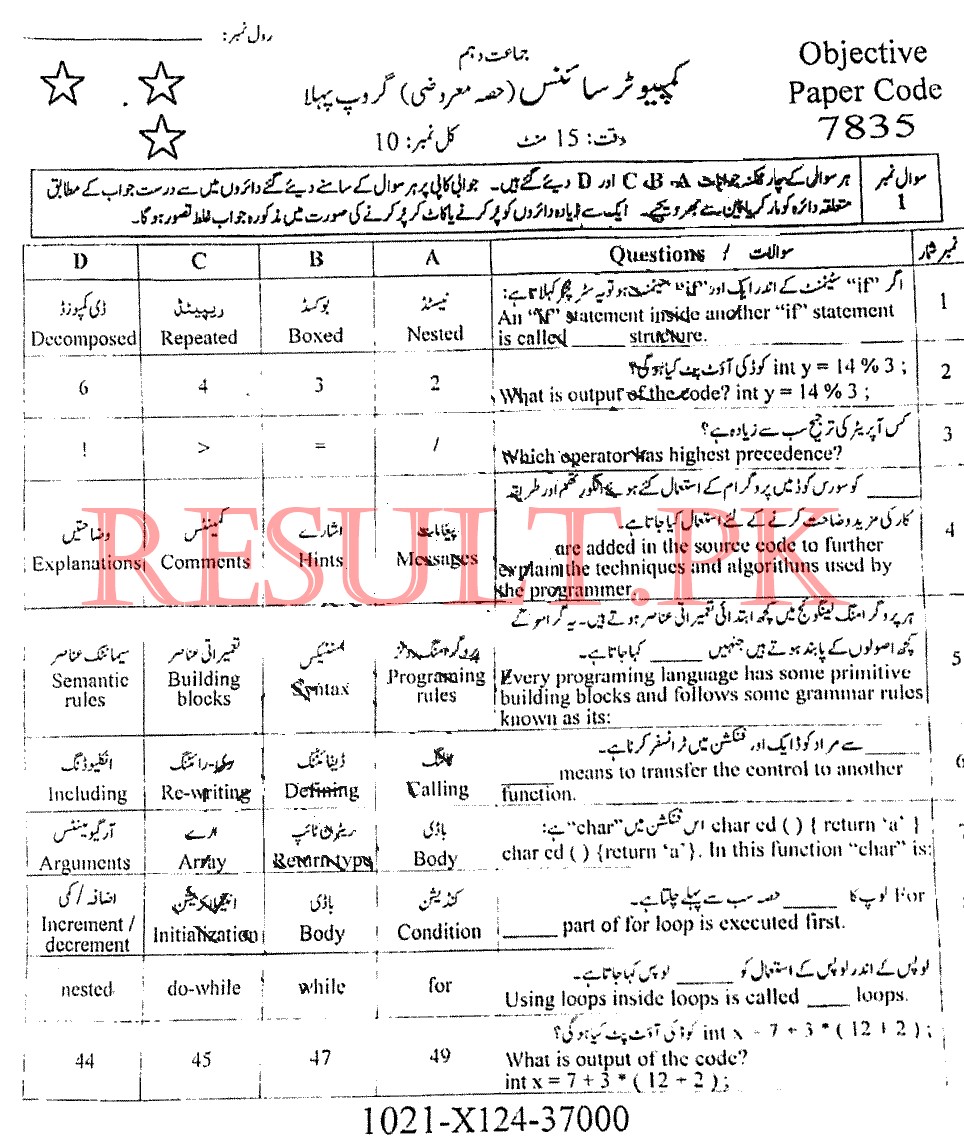 رول نمبر:
جماعت دہم
کمپیوٹر سائنس (حصہ معروضی) گروپ پہلا
وقت: 15 منٹ کل نمبر: 10
Objective
Paper Code
7835
سوال نمبر 1
ہر سوال کے چار ممکنہ جوابات A، B، C اور D دیئے گئے ہیں۔ جوابی کاپی پر ہر سوال کے سامنے دیئے گئے دائروں میں سے درست جواب کے مطابق
متعلقہ دائرہ کو مارکر یا پین سے بھر دیجیے۔ ایک سے زیادہ دائروں کو پر کرنے یا کاٹ کر پر کرنے کی صورت میں مذکورہ جواب غلط تصور ہوگا۔
نمبر شمار
سوالات / Questions
A B C D
1
اگر "if" سٹیٹمنٹ کے اندر ایک اور "if" سٹیٹمنٹ ہو تو یہ سٹرکچر کہلاتا ہے:
An "if" statement inside another "if" statement
is called _____ structure.
نیسٹڈ بوکسڈ ریپیٹڈ ڈی کمپوزڈ
Nested Boxed Repeated Decomposed
2
int y = 14 % 3 ; کوڈ کی آؤٹ پٹ کیا ہوگی؟
What is output of the code? int y = 14 % 3 ;
2 3 4 6
3
کس آپریٹر کی ترجیح سب سے زیادہ ہے؟
Which operator has highest precedence?
/ = > !
4
_____ کو سورس کوڈ میں پروگرام کے استعمال کئے ہوئے الگورتھم اور طریقہ
کار کی مزید وضاحت کرنے کے لئے استعمال کیا جاتا ہے۔
_____ are added in the source code to further
explain the techniques and algorithms used by
the programmer.
پیغامات اشارے کمینٹس وضاحتیں
Messages Hints Comments Explanations
5
ہر پروگرامنگ لینگوئج میں کچھ ابتدائی تعمیراتی عناصر ہوتے ہیں۔ یہ گرامر کے
کچھ اصولوں کے پابند ہوتے ہیں جنہیں _____ کہا جاتا ہے۔
Every programing language has some primitive
building blocks and follows some grammar rules
known as its:
پروگرامنگ رولز سنٹیکس تعمیراتی عناصر سیمانٹک عناصر
Programing rules Syntax Building blocks Semantic rules
6
_____ سے مراد کوڈ ایک اور فنکشن میں ٹرانسفر کرنا ہے۔
_____ means to transfer the control to another
function.
کالنگ ڈیفائننگ ری-رائٹنگ انکلیوڈنگ
Calling Defining Re-writing Including
char cd ( ) { return 'a' } اس فنکشن میں "char" ہے:
char cd ( ) {return 'a'}. In this function "char" is:
باڈی ریٹرن ٹائپ ارے آرگیومینٹس
Body Return type Array Arguments
For لوپ کا _____ حصہ سب سے پہلے چلتا ہے۔
_____ part of for loop is executed first.
کنڈیشن باڈی انیشیلائزیشن اضافہ / کمی
Condition Body Initialization Increment / decrement
لوپس کے اندر لوپس کے استعمال کو _____ لوپس کہا جاتا ہے۔
Using loops inside loops is called ____ loops.
for while do-while nested
int x = 7 + 3 * ( 12 + 2 ) ; کوڈ کی آؤٹ پٹ کیا ہوگی؟
What is output of the code?
int x = 7 + 3 * ( 12 + 2 ) ;
49 47 45 44
1021-X124-37000
RESULT.PK